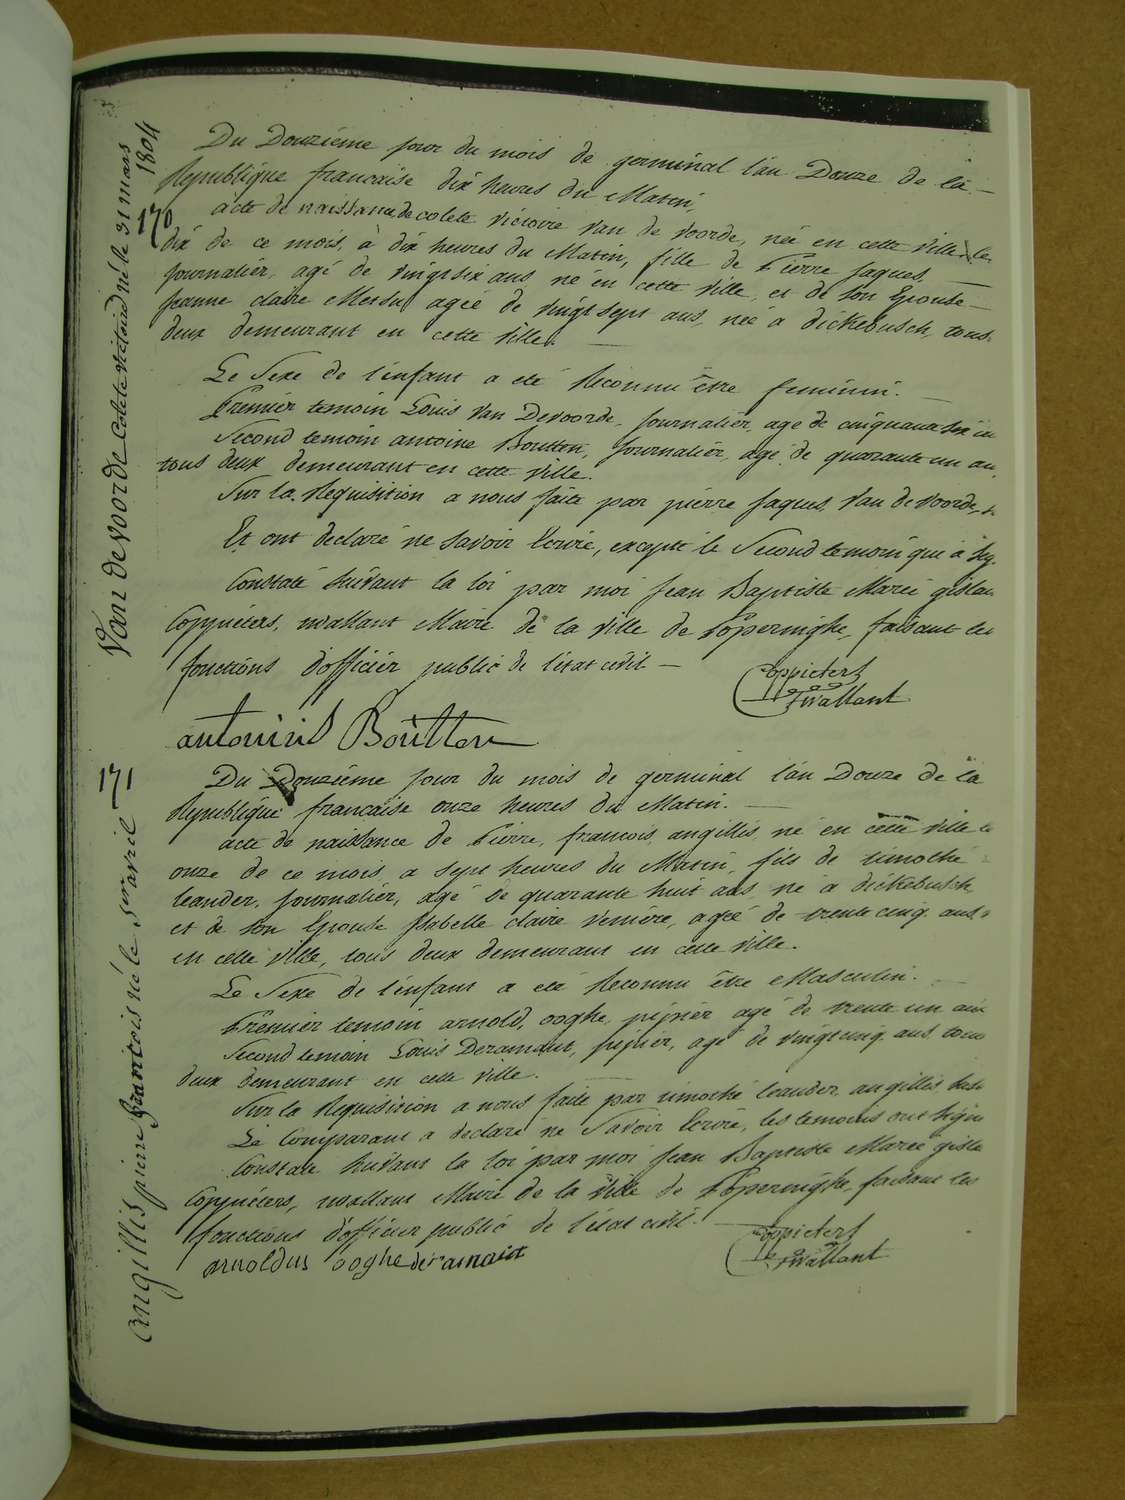 Van de Voorde Colete victoire né le 31 mars 1804
170
Du Douzième jour du mois de germinal l'an Douze de la
Republique francaise dix heures du Matin,
acte de naissance de colete victoire van de voorde, née en cette ville le
dix de ce mois, à dix heures du Matin, fille de Pierre jaques,
journalier, agé de vingt six ans né en cette ville, et de son Epouse
jeanne claire Mersu agée de vingt sept ans, née a dickebusch, tous
deux demeurant en cette ville.
Le Sexe de l'infant a eté Reconnu être feminin.
Premier temoin Louis Van Devoorde, journalier, agé de cinquante six an
Second temoin antoine Boutton, journalier, agé de quarante un an,
tous deux demeurant en cette ville.
Sur la Requisition a nous faite par pierre jaques Van de voorde,
Et ont declaré ne savoir Ecrire, excepté le Second temoin qui a sig.
Constaté suivant la loi par moi jean Baptiste Marie gislan
Coppieters, wallant Maire de la ville de Poperinghe, faisant les
fonctions d'officier public de l'état civil
Coppieters
Twallant
antonius Boutton
171
angillis pierre francois né le 1er avril
Du Douzième jour du mois de germinal l'an Douze de la
Republique francaise onze heures du Matin.
acte de naissance de Pierre, francois, angillis, né en cette ville le
onze de ce mois a sept heures du Matin, fils de timothé
leander, journalier, agé de quarante huit ans, né a dickebusch
et de son Epouse Isabelle claire Venière, agée de trente cinq ans
en cette ville, tous deux demeurant en cette ville.
Le Sexe de l'infant a eté Reconnu être Masculin.
Premier temoin arnold, ooghe, pipier agé de trente un ans
Second temoin Louis Deramaut, pipier, agé de vingt cinq ans tous
deux demeurant en cette ville.
Sur la Requisition a nous faite par timothé leander, angillis
Le Comparant a declaré ne Savoir Ecrire, les temoins ont signé
Constaté suivant la loi par moi jean Baptiste Marie gisla
Coppieters, wallant Maire de la Ville de Poperinghe, faisant les
fonctions d'officier public de l'état civil.
Coppieters
Twallant
arnoldus ooghe deramaut